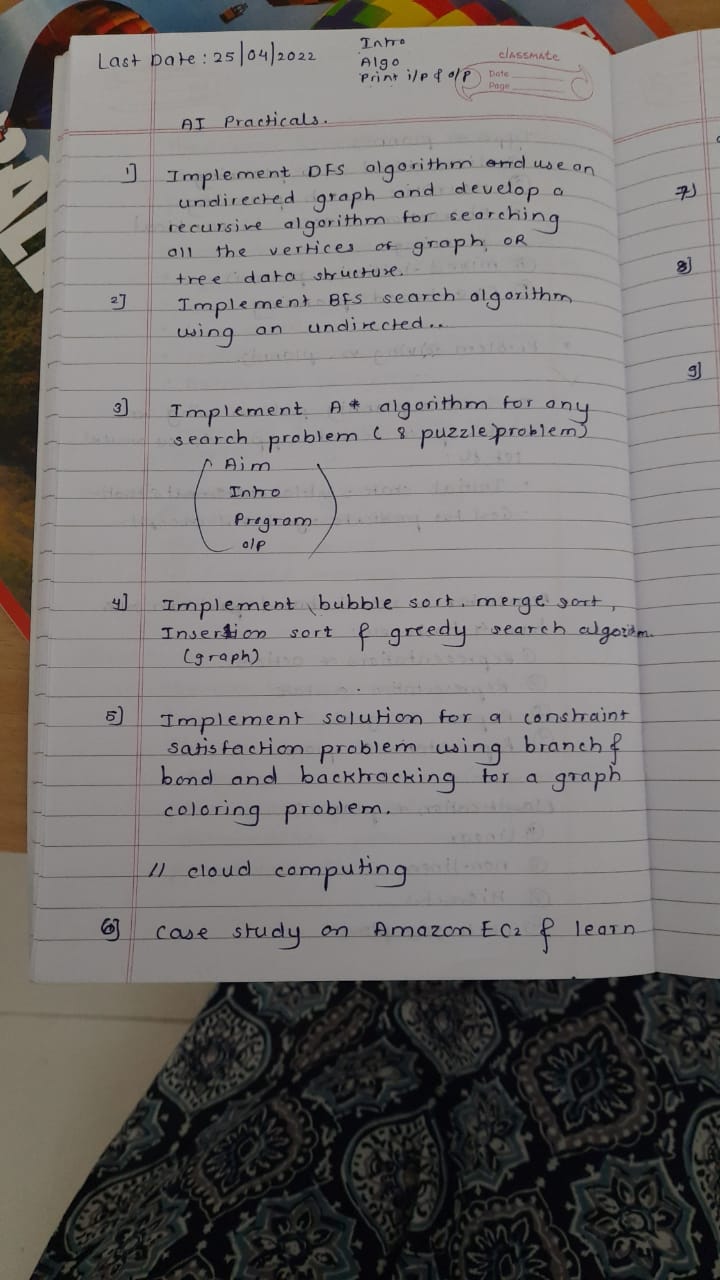 Last Date : 25/04/2022
Intro
Algo
Print i/p & o/p
classmate
Date
Page
AI Practicals.
1] Implement DFS algorithm and use an
undirected graph and develop a
recursive algorithm for searching
all the vertices of graph OR
tree data structure.
2] Implement BFS search algorithm
using an undirected..
3] Implement A* algorithm for any
search problem ( 8 puzzle problem)
Aim
Intro
Program
o/p
4] Implement bubble sort. merge sort,
Insertion sort & greedy search algorithm.
(graph)
5] Implement solution for a constraint
satisfaction problem using branch &
bond and backtracking for a graph
coloring problem.
// cloud computing
6] case study on Amazon EC2 & learn
7]
8]
9]